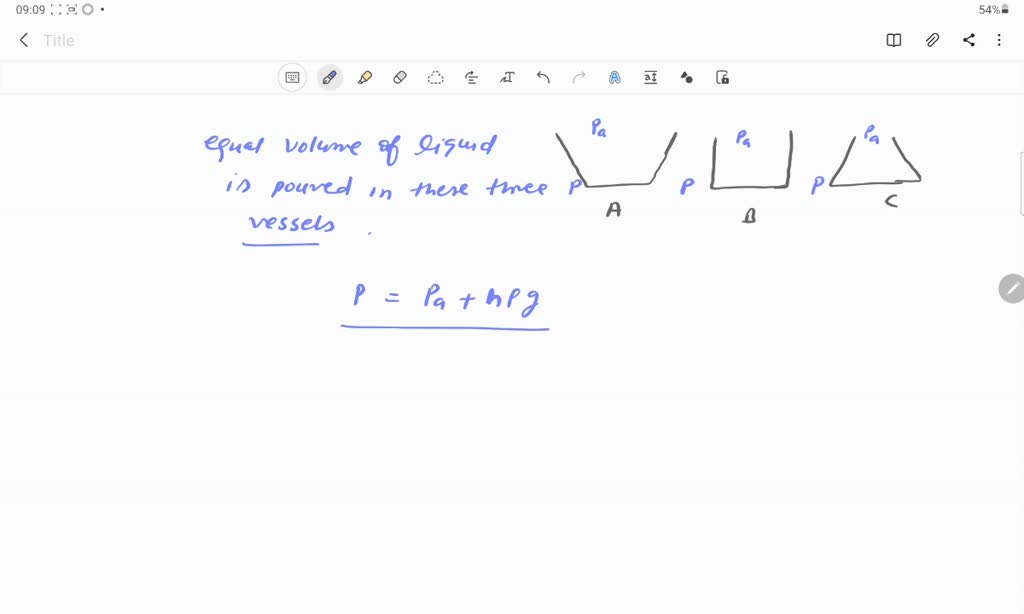 09:09
54%
Title
equal volume of liquid
is poured in these three
vessels .
Pa Pa Pa
P P P
A B C
P = Pa + hρg